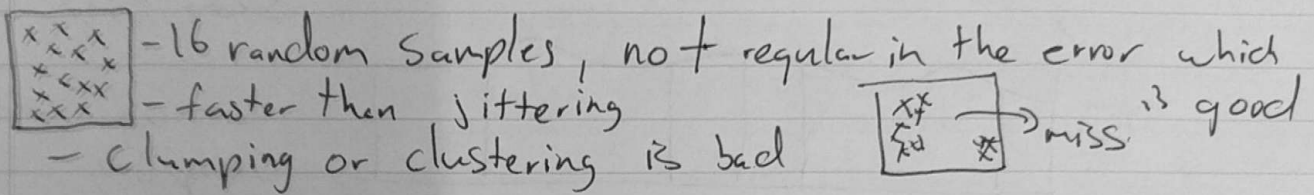 - 16 random samples, not regular in the error which
is good
- faster then jittering
miss
- clumping or clustering is bad